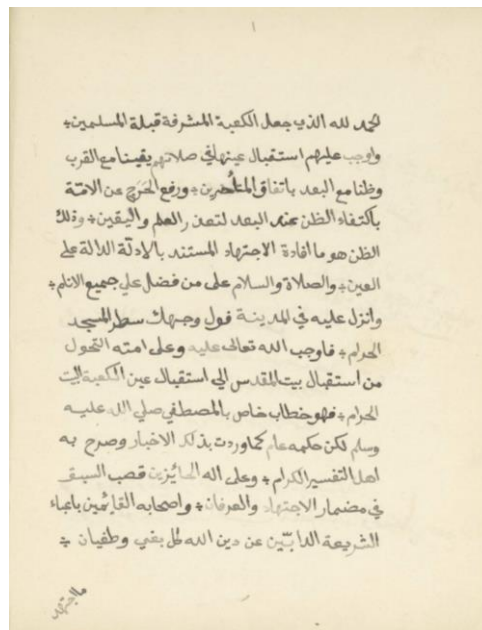 ١
الحمد لله الذي جعل الكعبة المشرفة قبلة المسلمين
واوجب عليهم استقبال عينها في صلاتهم يقينا مع القرب
وظنا مع البعد باتفاق المتأخرين ورفع الحرج عن الامة
باكتفاء الظن عند البعد لتعذر العلم واليقين وذلك
الظن هو ما افادة الاجتهاد المستند بالادلة الدالة على
العين والصلاة والسلام على من فضل على جميع الانام
وانزل عليه في المدينة فول وجهك سطر المسجد
الحرام فاوجب الله تعالى عليه وعلى امته التحول
من استقبال بيت المقدس الى استقبال عين الكعبة البيت
الحرام فهو خطاب خاص بالمصطفي صلي الله عليه
وسلم لكن حكمه عام كما وردت بذلك الاخبار وصرح به
اهل التفسير الكرام وعلى اله الحائزين قصب السبق
في مضمار الاجتهاد والعرفان واصحابه القايمين باعباء
الشريعة الذابين عن دين الله كل بغي وطغيان
ما اجتهد